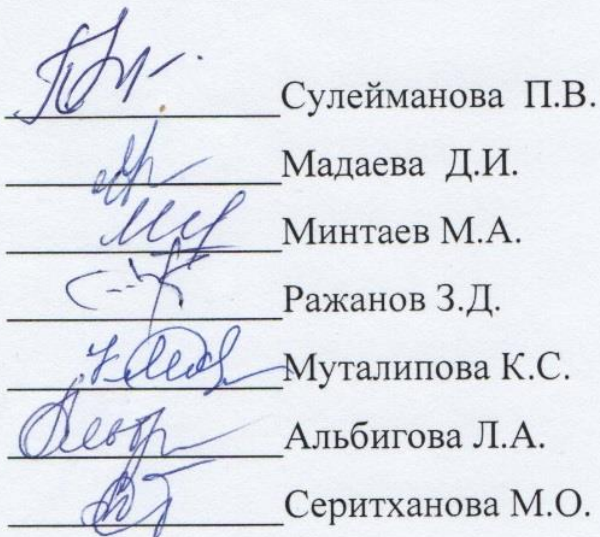 Сулейманова П.В.
Мадаева Д.И.
Минтаев М.А.
Ражанов З.Д.
Муталипова К.С.
Альбигова Л.А.
Серитханова М.О.